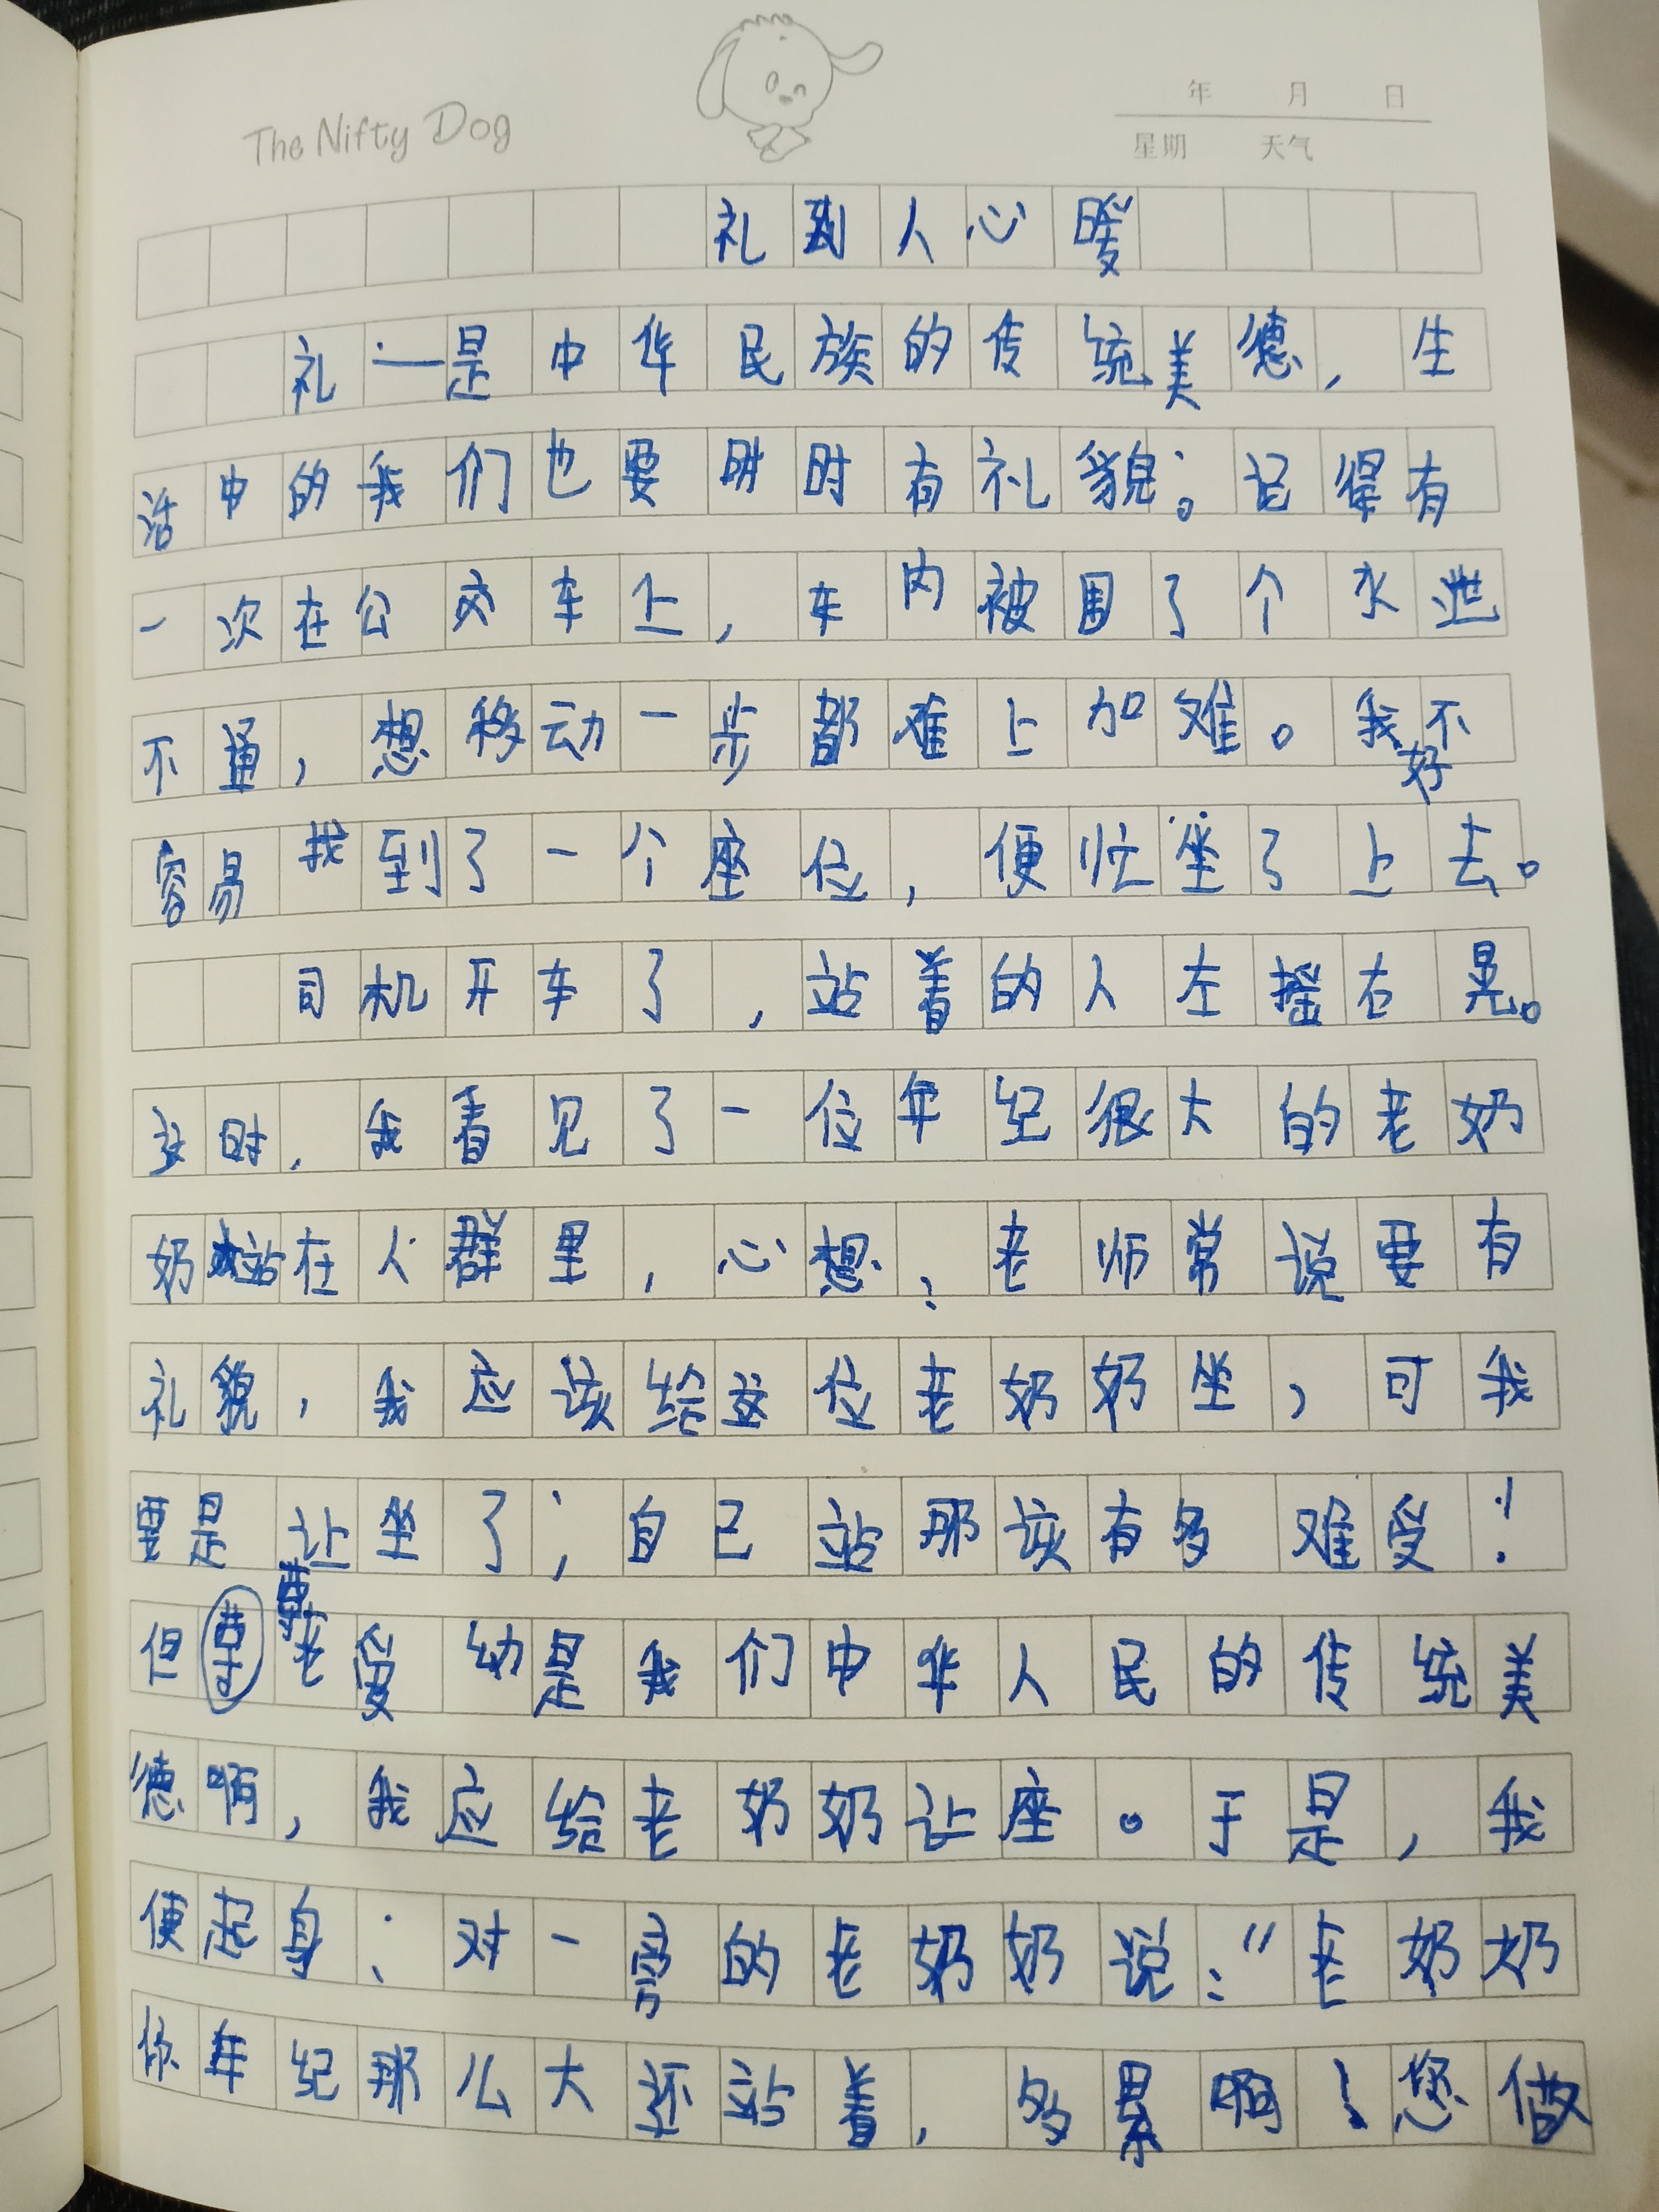 The Nifty Dog
年 月 日
星期 天气
礼到人心暖
礼一是中华民族的传统美德，生
活中的我们也要时时有礼貌。记得有
一次在公交车上，车内被围了个水泄
不通，想移动一步都难上加难。我好不
容易找到了一个座位，便忙坐了上去。
司机开车了，站着的人左摇右晃。
这时，我看见了一位年纪很大的老奶
奶站在人群里，心想，老师常说要有
礼貌，我应该给这位老奶奶坐，可我
要是让坐了；自己站那该有多难受！
但尊老爱幼是我们中华人民的传统美
德啊，我应给老奶奶让座。于是，我
便起身：对一旁的老奶奶说："老奶奶
你年纪那么大还站着，多累啊！您做